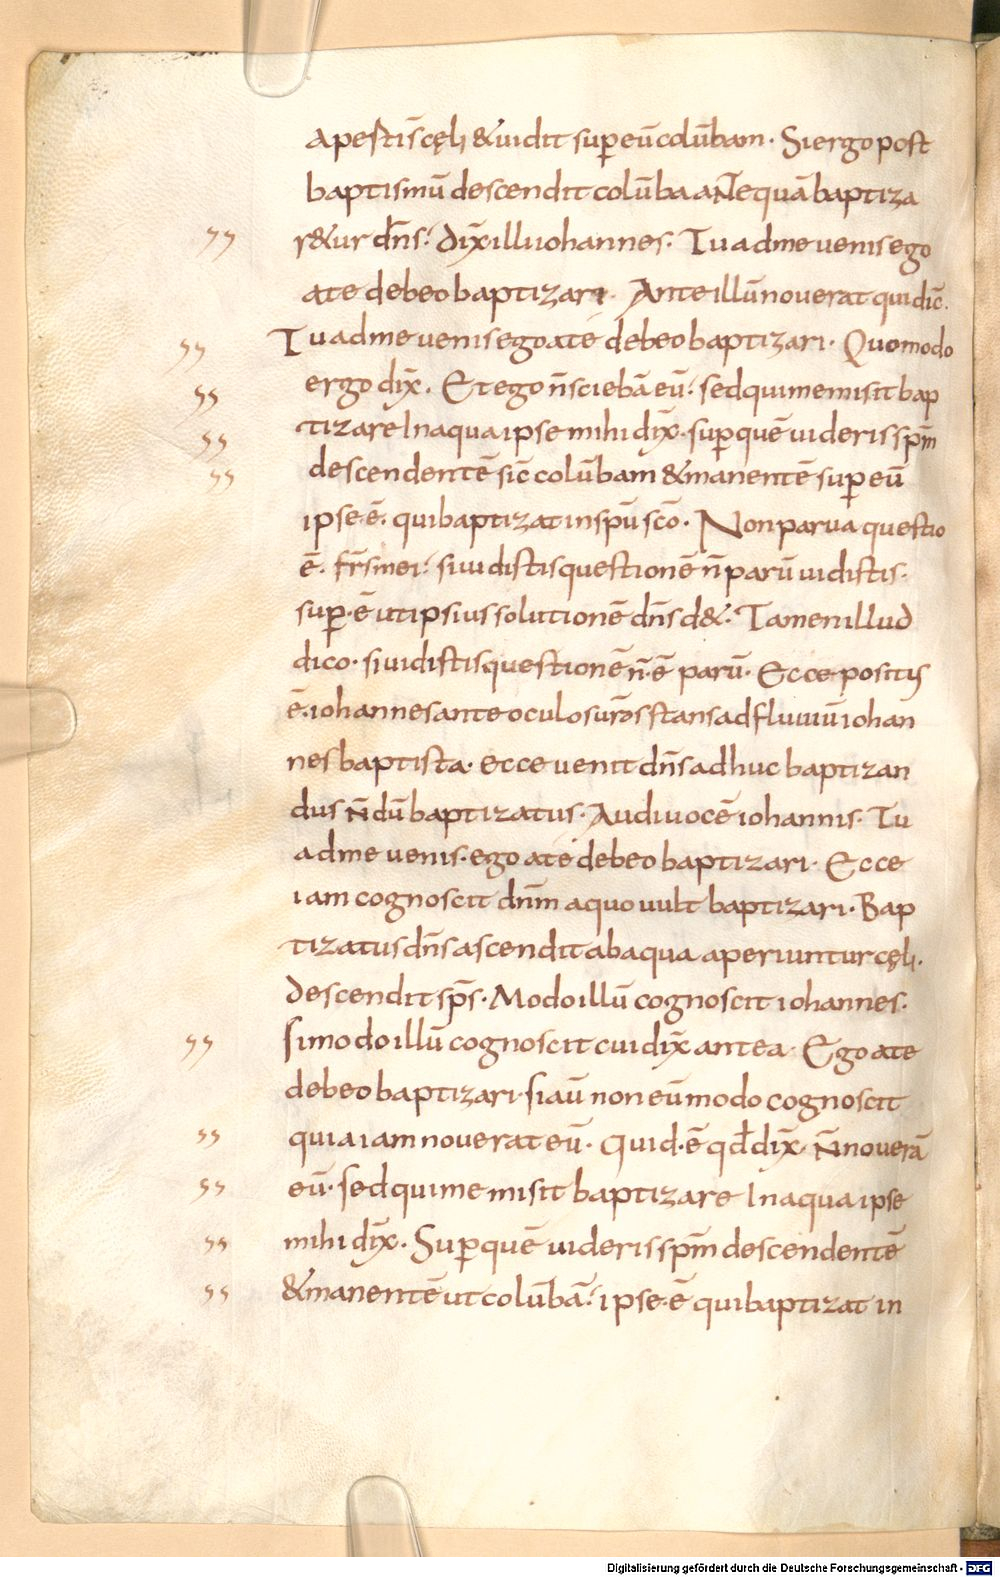 apesti s̄ cęli & uidit sup̱ eū colūbam. Si ergo post
baptismū descendit colūba anteqaū baptiza
r&ur dn̄s. dix̄ illi iohannes. Tu ad me uenis ego
a te debeo baptizari. Ante illū nouerat qui dic̄.
Tu ad me uenis ego a te debeo baptizari. Quomodo
ergo dix̄. Et ego n̄ sciebā eū. sed qui me misit bap
tizare In aqua ipse mihi dix̄. sup̱ quē uideris sp̄m
descendentē sic̄ colūbam & manentē sup̱ eū
ipse ē. qui baptizat in sp̄u sc̄o. Non parua questio
ē. fr̄s mei. si uidistis questionē n̄ parū uidistis.
sup̱ ē ut ipsius solutionē dn̄s d&. Tamen illud
dico. si uidistis questionē n̄ ē parū. Ecce positus
ē. iohannes ante oculos ur̄os stans ad fluuiū iohan
nes baptista. ecce uenit dn̄s adhuc baptizan
dus n̄dū baptizatus. Audi uocē iohannis. Tu
ad me uenis. ego a te debeo baptizari. Ecce
iam cognoscit dn̄m a quo uult baptizari. Bap
tizatus dn̄s ascendit ab aqua aperiuntur cęli.
descendit sp̄s. Modo illū cognoscit iohannes.
si modo illū cognoscit cui dix̄ antea. Ego a te
debeo baptizari. si aū non eū modo cognoscit
quia iam nouerat eū. Quid. ē qd̄ dix̄. n̄ nouerā
eū. sed qui me misit baptizare In aqua ipse
mihi dix̄. Sup̱ quē uideris sp̄m descendentē
& manentē ut colūbā. ipse. ē qui baptizat in
Digitalisierung gefördert durch die Deutsche Forschungsgemeinschaft - DFG